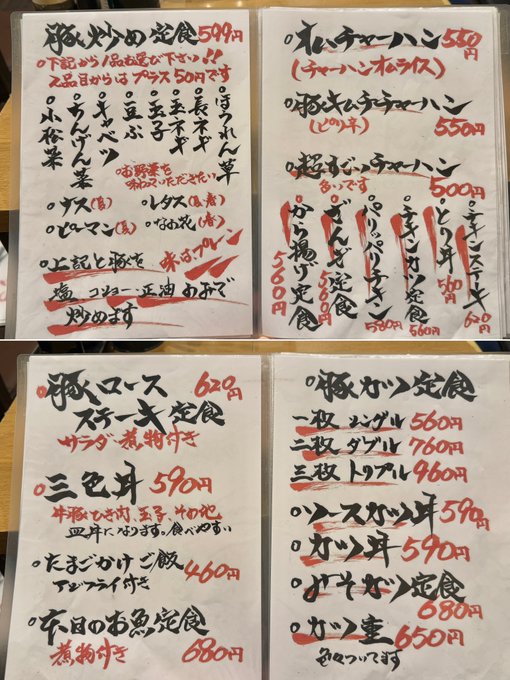 豚炒め定食 599円
○下記から1品お選び下さい!!
2品目からはプラス50円です
ほうれん草
長ネギ
玉ネギ
玉子
豆ぷ
キャベツ
ちんげん菜
小松菜
お野菜を
味わっていただきたい
○ナス(夏) ○レタス(春・夏)
○ピーマン(夏) ○なお花(春)
○上記と豚肉を 味はプレーン
塩 コショー 正油 のみで
炒めます
○オムチャーハン 550円
(チャーハンオムライス)
○豚キムチチャーハン
(ピリ辛) 550円
○超すごいチャーハン
多いです 500円
○チキンステーキ 620円
○とり丼 560円
○チキンカツ定食 560円
○パリパリチキン 580円
○ざんぎ定食 560円
○から揚げ定食 560円
○豚ロース 620円
ステーキ定食
サラダ煮物付き
○三色丼 590円
牛豚ひき肉、玉子、その他
皿丼になります。食べやすい
○たまごかけご飯 460円
アジフライ付き
○本日のお魚定食
煮物付き 680円
○豚カツ定食
一枚 シングル 560円
二枚 ダブル 760円
三枚 トリプル 960円
○ソースカツ丼 590円
○カツ丼 590円
○みそカツ定食
680円
○カツ重 650円
色々ついてます